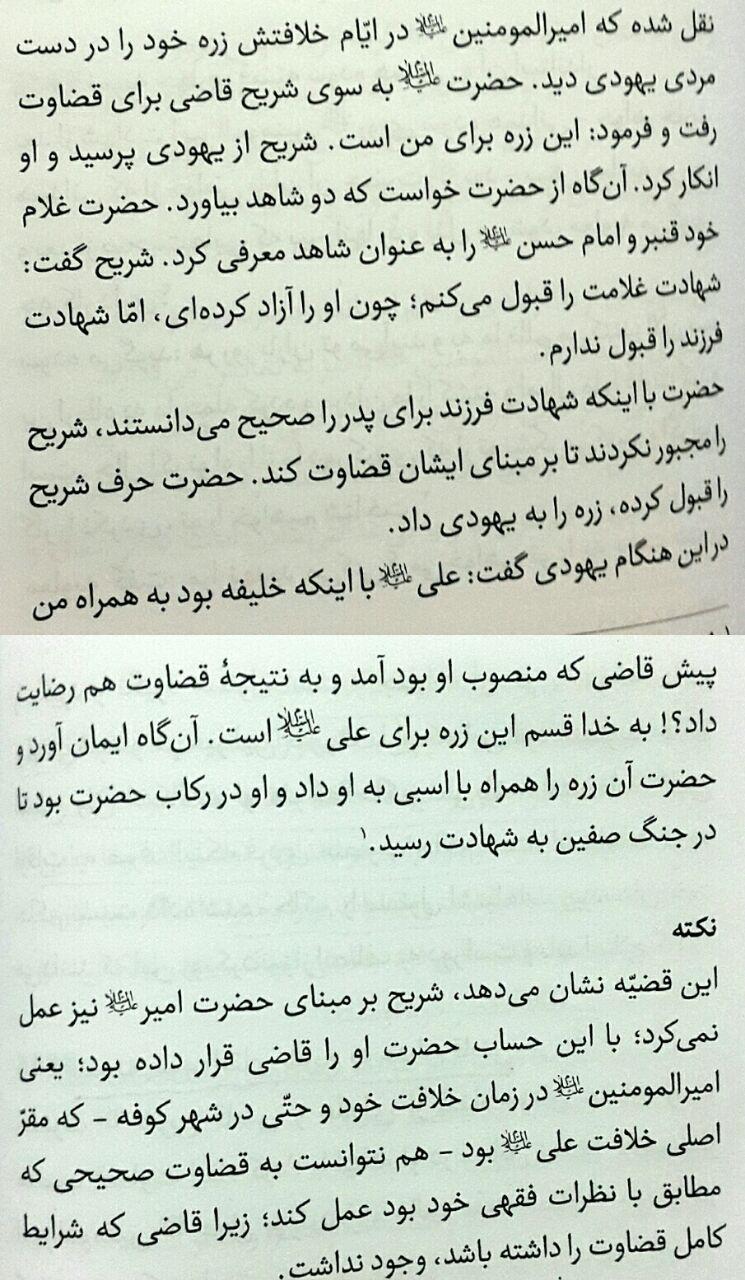 نقل شده که امیرالمومنین علیه‌السلام در ایّام خلافتش زره خود را در دست
مردی یهودی دید. حضرت علیه‌السلام به سوی شریح قاضی برای قضاوت
رفت و فرمود: این زره برای من است. شریح از یهودی پرسید و او
انکار کرد. آن‌گاه از حضرت خواست که دو شاهد بیاورد. حضرت غلام
خود قنبر و امام حسن علیه‌السلام را به عنوان شاهد معرفی کرد. شریح گفت:
شهادت غلامت را قبول می‌کنم؛ چون او را آزاد کرده‌ای، امّا شهادت
فرزند را قبول ندارم.
حضرت با اینکه شهادت فرزند برای پدر را صحیح می‌دانستند، شریح
را مجبور نکردند تا بر مبنای ایشان قضاوت کند. حضرت حرف شریح
را قبول کرده، زره را به یهودی داد.
در این هنگام یهودی گفت: علی علیه‌السلام با اینکه خلیفه بود به همراه من
پیش قاضی که منصوب او بود آمد و به نتیجهٔ قضاوت هم رضایت
داد؟! به خدا قسم این زره برای علی علیه‌السلام است. آن‌گاه ایمان آورد و
حضرت آن زره را همراه با اسبی به او داد و او در رکاب حضرت بود تا
در جنگ صفین به شهادت رسید.۱
نکته
این قضیّه نشان می‌دهد، شریح بر مبنای حضرت امیر علیه‌السلام نیز عمل
نمی‌کرد؛ با این حساب حضرت او را قاضی قرار داده بود؛ یعنی
امیرالمومنین علیه‌السلام در زمان خلافت خود و حتّی در شهر کوفه - که مقرّ
اصلی خلافت علی علیه‌السلام بود - هم نتوانست به قضاوت صحیحی که
مطابق با نظرات فقهی خود بود عمل کند؛ زیرا قاضی که شرایط
کامل قضاوت را داشته باشد، وجود نداشت.